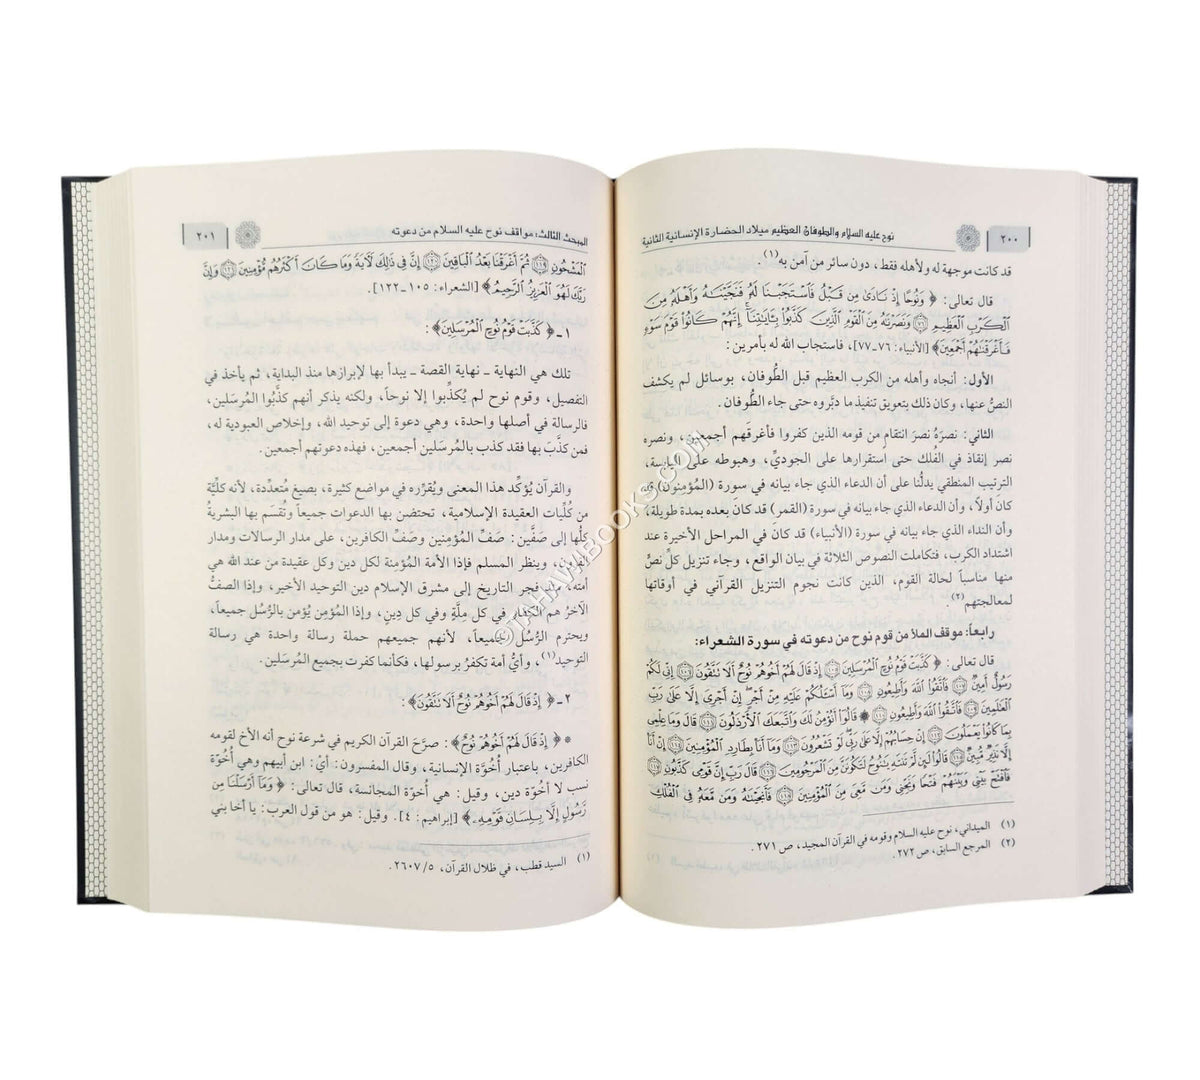 نوح عليه السلام والطوفان العظيم ميلاد الحضارة الإنسانية الثانية
٢٠٠
قد كانت موجهة له ولأهله فقط، دون سائر من آمن به(١).
قال تعالى: ﴿ وَنُوحًا إِذْ نَادَىٰ مِن قَبْلُ فَاسْتَجَبْنَا لَهُ فَنَجَّيْنَاهُ وَأَهْلَهُ مِنَ
الْكَرْبِ الْعَظِيمِ ٧٦ وَنَصَرْنَاهُ مِنَ الْقَوْمِ الَّذِينَ كَذَّبُوا بِآيَاتِنَا إِنَّهُمْ كَانُوا قَوْمَ سَوْءٍ
فَأَغْرَقْنَاهُمْ أَجْمَعِينَ﴾ [الأنبياء: ٧٦-٧٧]، فاستجاب الله له بأمرين:
الأول: أنجاه وأهله من الكرب العظيم قبل الطُّوفان، بوسائل لم يكشف
النصُّ عنها، وكان ذلك بتعويق تنفيذ ما دبَّروه حتى جاء الطُّوفان.
الثاني: نصرَهُ نصرَ انتقامٍ من قومه الذين كفروا فأغرقَهم أجمعين، ونصره
نصر إنقاذ في الفُلك حتى استقرارها على الجوديِّ، وهبوطه على اليابسة،
الترتيب المنطقي يدلُّنا على أن الدعاء الذي جاء بيانه في سورة (المُؤمِنون) قد
كان أولاً، وأن الدعاء الذي جاء بيانه في سورة (القمر) قد كان بعده بمدة طويلة،
وأن النداء الذي جاء بيانه في سورة (الأنبياء) قد كان في المراحل الأخيرة عند
اشتداد الكرب، فتكاملت النصوص الثلاثة في بيان الواقع، وجاء تنزيل كلِّ نصٍّ
منها مناسباً لحالة القوم، الذين كانت نجوم التنزيل القرآني في أوقاتها
لمعالجتهم(٢).
رابعاً: موقف الملأ من قوم نوح من دعوته في سورة الشعراء:
قال تعالى: ﴿ كَذَّبَتْ قَوْمُ نُوحٍ الْمُرْسَلِينَ ١٠٥ إِذْ قَالَ لَهُمْ أَخُوهُمْ نُوحٌ أَلَا تَتَّقُونَ ١٠٦ إِنِّي لَكُمْ
رَسُولٌ أَمِينٌ ١٠٧ فَاتَّقُوا اللَّهَ وَأَطِيعُونِ ١٠٨ وَمَا أَسْأَلُكُمْ عَلَيْهِ مِنْ أَجْرٍ إِنْ أَجْرِيَ إِلَّا عَلَىٰ رَبِّ
الْعَالَمِينَ ١٠٩ فَاتَّقُوا اللَّهَ وَأَطِيعُونِ ١١٠ ۞ قَالُوا أَنُؤْمِنُ لَكَ وَاتَّبَعَكَ الْأَرْذَلُونَ ١١١ قَالَ وَمَا عِلْمِي
بِمَا كَانُوا يَعْمَلُونَ ١١٢ إِنْ حِسَابُهُمْ إِلَّا عَلَىٰ رَبِّي لَوْ تَشْعُرُونَ ١١٣ وَمَا أَنَا بِطَارِدِ الْمُؤْمِنِينَ ١١٤ إِنْ أَنَا
إِلَّا نَذِيرٌ مُّبِينٌ ١١٥ قَالُوا لَئِن لَّمْ تَنتَهِ يَا نُوحُ لَتَكُونَنَّ مِنَ الْمَرْجُومِينَ ١١٦ قَالَ رَبِّ إِنَّ قَوْمِي كَذَّبُونِ ١١٧
فَافْتَحْ بَيْنِي وَبَيْنَهُمْ فَتْحًا وَنَجِّنِي وَمَن مَّعِيَ مِنَ الْمُؤْمِنِينَ ١١٨ فَأَنجَيْنَاهُ وَمَن مَّعَهُ فِي الْفُلْكِ
(١) الميداني، نوح عليه السلام وقومه في القرآن المجيد، ص ٢٧١.
(٢) المرجع السابق، ص ٢٧٢.
المبحث الثالث: مواقف نوح عليه السلام من دعوته
٢٠١
الْمَشْحُونِ ١١٩ ثُمَّ أَغْرَقْنَا بَعْدُ الْبَاقِينَ ١٢٠ إِنَّ فِي ذَٰلِكَ لَآيَةً وَمَا كَانَ أَكْثَرُهُم مُّؤْمِنِينَ ١٢١ وَإِنَّ
رَبَّكَ لَهُوَ الْعَزِيزُ الرَّحِيمُ﴾ [الشعراء: ١٠٥-١٢٢].
١- ﴿ كَذَّبَتْ قَوْمُ نُوحٍ الْمُرْسَلِينَ﴾:
تلك هي النهاية - نهاية القصة - يبدأ بها لإبرازها منذ البداية، ثم يأخذ في
التفصيل، وقوم نوح لم يُكذِّبوا إلا نوحاً، ولكنه يذكر أنهم كذَّبوا المُرسَلين،
فالرسالة في أصلها واحدة، وهي دعوة إلى توحيد الله، وإخلاص العبودية له،
فمن كذَّبَ بها فقد كذب بالمُرسَلين أجمعين، فهذه دعوتهم أجمعين.
والقرآن يُؤكِّد هذا المعنى ويُقرِّره في مواضع كثيرة، بصيغ متعدِّدة، لأنه كليَّة
من كُلِّيات العقيدة الإسلامية، تحتضن بها الدعوات جميعاً وتُقسَم بها البشرية
كلُّها إلى صفَّين: صفِّ المُؤمنين وصفِّ الكافرين، على مدار الرسالات ومدار
القرون، وينظر المسلم فإذا الأمة المُؤمنة لكل دين وكل عقيدة من عند الله هي
أمته، منذ فجر التاريخ إلى مشرق الإسلام دين التوحيد الأخير، وإذا الصفُّ
الآخر هم الكفار في كل مِلَّةٍ وفي كل دِينٍ، وإذا المُؤمِن يُؤمن بالرُّسُل جميعاً،
ويحترم الرُّسُل جميعاً، لأنهم جميعهم حملة رسالة واحدة هي رسالة
التوحيد(١)، وأيُّ أمة تكفرُ برسولها، فكأنما كفرت بجميع المُرسَلين.
٢- ﴿ إِذْ قَالَ لَهُمْ أَخُوهُمْ نُوحٌ أَلَا تَتَّقُونَ﴾:
* ﴿ إِذْ قَالَ لَهُمْ أَخُوهُمْ نُوحٌ﴾: صرَّحَ القرآن الكريم في شرعة نوح أنه الأخ لقومه
الكافرين، باعتبار أُخُوَّة الإنسانية، وقال المفسرون: أيْ: ابن أبيهم وهي أُخُوَّة
نسب لا أخوَّة دين، وقيل: هي أخوّة المجانسة، قال تعالى: ﴿ وَمَا أَرْسَلْنَا مِن
رَّسُولٍ إِلَّا بِلِسَانِ قَوْمِهِ﴾ [إبراهيم: ٤]. وقيل: هو من قول العرب: يا أخا بني
(١) السيد قطب، في ظلال القرآن، ٥/ ٢٦٠٧.